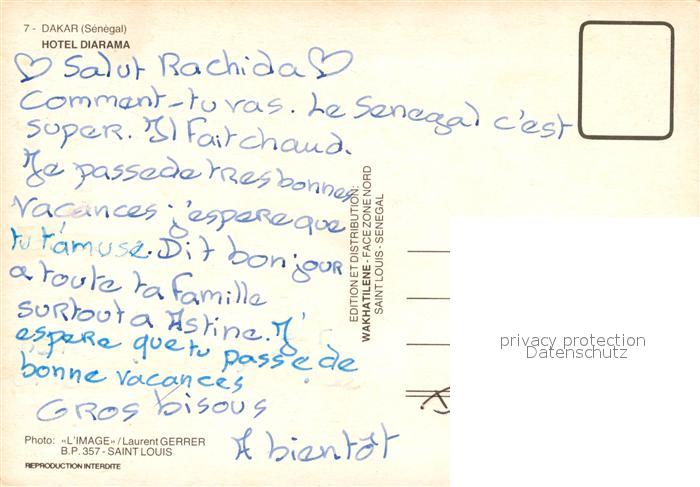 7 - DAKAR (Sénégal)
HOTEL DIARAMA
♡ Salut Rachida ♡
Comment-tu vas. Le Senegal c'est
super. Il fait chaud.
Je passe de tres bonnes
vacances j'espere que
tu t'amuse. Dit bonjour
a toute ta famille
surtout a Astine. J'
espere que tu passe de
bonne vacances
Gros bisous
A bientôt
EDITION ET DISTRIBUTION:
WAKHATILENE - FACE ZONE NORD
SAINT LOUIS - SENEGAL
privacy protection
Datenschutz
Photo: «L'IMAGE» / Laurent GERRER
B.P. 357 - SAINT LOUIS
REPRODUCTION INTERDITE